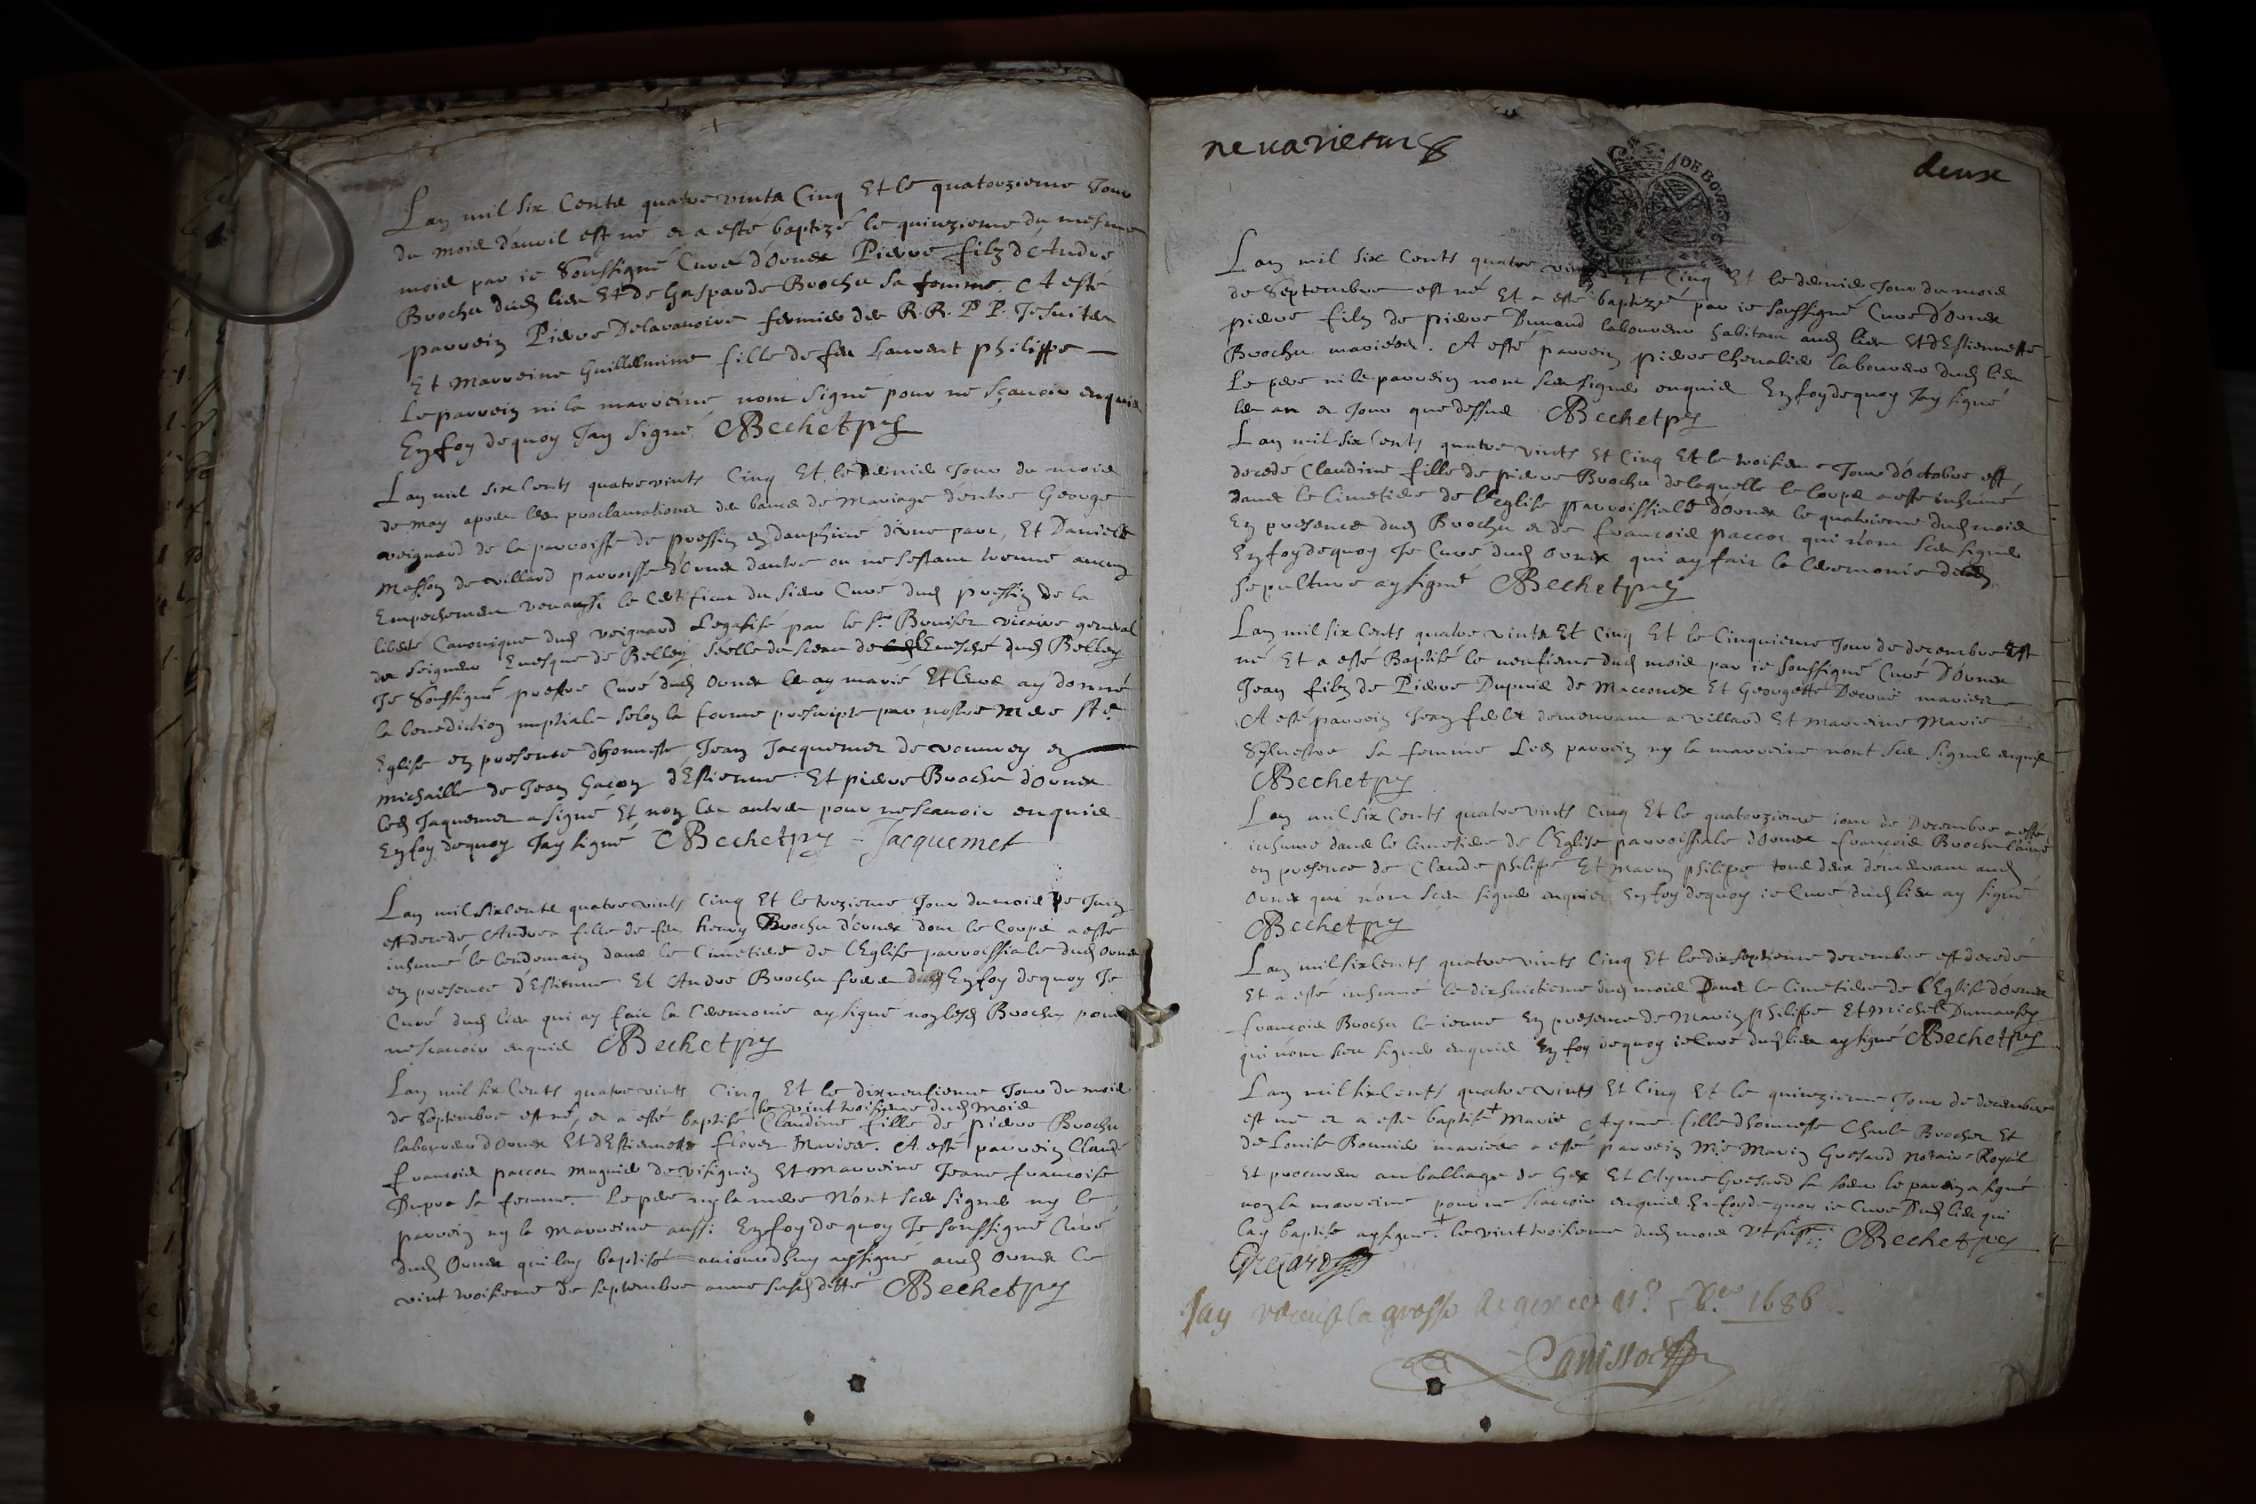 Lan mil six Cents quatre vints Cinq Et le quatorzieme Jour
du mois davvil est né et a esté baptizé le quinzieme du mesme
mois par je Soussigné Curé d'Ornex Pierre filz d'André
Brochu dud lieu Et de Gasparde Brochu sa femme. A esté
parrein Pierre Delavanoire fermier des R. R. P P. Jesuites
Et Marreine Guillermine fille de feu Laurent philippe
Le parrein ni la marreine nont signé pour ne sçavoir enquis
En foy de quoy Jay signé CBechet pre
Lan mil six Cents quatre vints Cinq Et le dernier Jour du mois
de may apres les proclamations des bancs de Mariage d'entre George
veignard de la parroisse de pressin en dauphiné d'une part, Et Daniele
Masson de villard parroisse d'Ornex dautre ou ne sestant trouvé aucun
Empechement veu aussi le Certificat du sieur Curé dud pressin de la
liberté Canonique dud veignard Legalisé par le sr vicaire general
du seigneur Evesque de Belley séellé du sceau de Evesché dud Belley
Je Soussigné prestre Curé dud Ornex les ay mariés Et leurs ay donné
la benediction nuptiale selon la forme prescripte par nostre Mere ste
Eglise en presence d'honneste Jean Jacquemet de vouvrey en
michaille de Jean Gacon d'Estienne Et pierre Brochu d'Ornex
led Jaquemet a signé Et non les autres pour ne scavoir enquis
En foy de quoy Jay signé CBechet pre Jacquemet
Lan mil six Cents quatre vints Cinq Et le trezieme Jour du mois de Juin
est decedé Andrea fille de feu henry Brochu d'Ornex dont le Corps a esté
inhumé le lendemain dans le Cimetiere de l'Eglise parroissiale dud Ornex
en presence d'Estienne Et André Brochu freres En foy de quoy Je
Curé dud lieu qui ay fait la Ceremonie ay signé non lesd Brochu pour
ne scavoir enquis CBechet pre
Lan mil six Cents quatre vints Cinq Et le dixneufieme Jour du mois
le vint troisieme dud mois
de Septembre est né, et a esté baptisé Claudine fille de pierre Brochu
laboureur d'Ornex Et d'Estiennette mariés. A esté parrein Claude
francois paccou de Et Marreine Jeane francoise
Dupra sa femme. Le pere ny la mere n'ont sceu signer ny le
parrein ny la Marreine aussi En foy de quoy Je soussigné Curé
dud Ornex qui lay baptisé aujourdhuy ay signé aud Ornex le
vint troisieme de septembre anne susd CBechet pre
ne varietur
deux
DE BOURGOG
Lan mil six Cents quatre vints Et Cinq Et le dernier Jour du mois
de Septembre est né Et a esté baptizé par je soussigné Curé d'Ornex
pierre filz de pierre Dunand laboureur habitant aud lieu Et d'Estiennette
Brochu mariés. A esté parrein pierre Chevalier laboureur dud lieu
Le pere ni le parrein nont sceu signer enquis En foy de quoy Jay signé
les an et Jour que dessus CBechet pre
Lan mil six Cents quatre vints Et Cinq Et le troisieme Jour d'Octobre est
decedé Claudine fille de pierre Brochu de laquelle le Corps a esté inhumé
dans le Cimetiere de l'Eglise parroissiale d'Ornex le quatrieme dud mois
En presence dud Brochu et de francois paccou qui n'ont sceu signer
En foy de quoy Je Curé dud Ornex qui ay fait la Ceremonie de lad
sepulture ay signé CBechet pre
Lan mil six Cents quatre vints Et Cinq Et le Cinquieme Jour de decembre Est
né Et a esté Baptisé le neufieme dud mois par je soussigné Curé D'Ornex
Jean filz de Pierre Dupuis de Macconex Et Georgette mariés
A esté parrein Jean demeurant a villard Et marreine Marie
Sylvestre sa femme Led parrein ny la marreine nont sceu signer enquis
CBechet pre
Lan mil six Cents quatre vints Cinq Et le quatorzieme jour de Decembre a esté
inhumé dans le Cimetiere de l'Eglise parroissiale d'Ornex francois Brochu l'aisné
en presence de Claude philippe Et Marin philippe tous deux demeurant aud
Ornex qui n'ont sceu signer enquis En foy de quoy je Curé dud lieu ay signé
CBechet pre
Lan mil six Cents quatre vints Cinq Et le dixseptieme decembre est decedé
Et a esté inhumé le dixhuictieme dud mois Dans le Cimetiere de l'Eglise d'Ornex
francois Brochu le jeune En presence de Marin philippe Et Michel
qui n'ont sceu signer enquis En foy de quoy je Curé dud lieu ay signé CBechet pre
Lan mil six Cents quatre vints Et Cinq Et le quinzieme Jour de decembre
est né et a esté baptisé + Marie Ayme fille d'honneste Charle Brochu Et
de Louise mariés a esté parrein Mre Marin Grosard Notaire Royal
Et procureur au balliage de Gex Et Clyme Grosard sa soeur le parrein a signé
non la marreine pour ne scavoir enquis En foy de quoy je Curé Dud lieu qui
lay baptisé ay signé. + le vint troisieme dud mois CBechet pre
Jay receu la grosse 1686